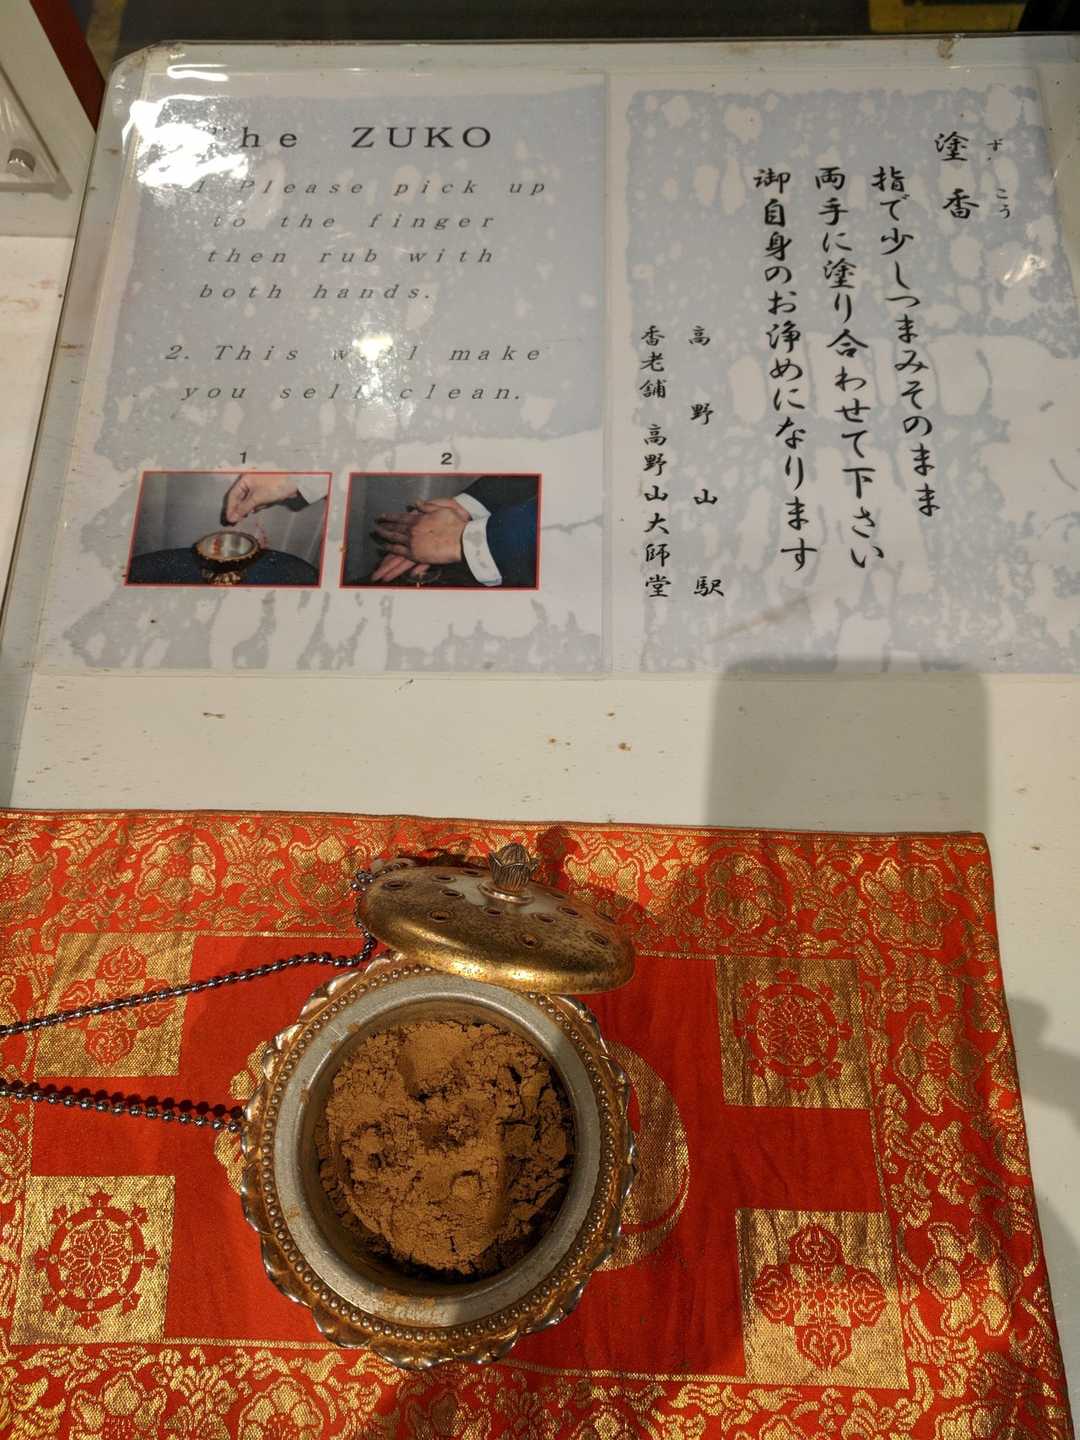 The ZUKO
1 Please pick up
to the finger
then rub with
both hands.
2. This will make
you self clean.
1
2
塗香
ずこう
指で少しつまみそのまま
両手に塗り合わせて下さい
御自身のお浄めになります
高野山駅
香老舗 高野山大師堂